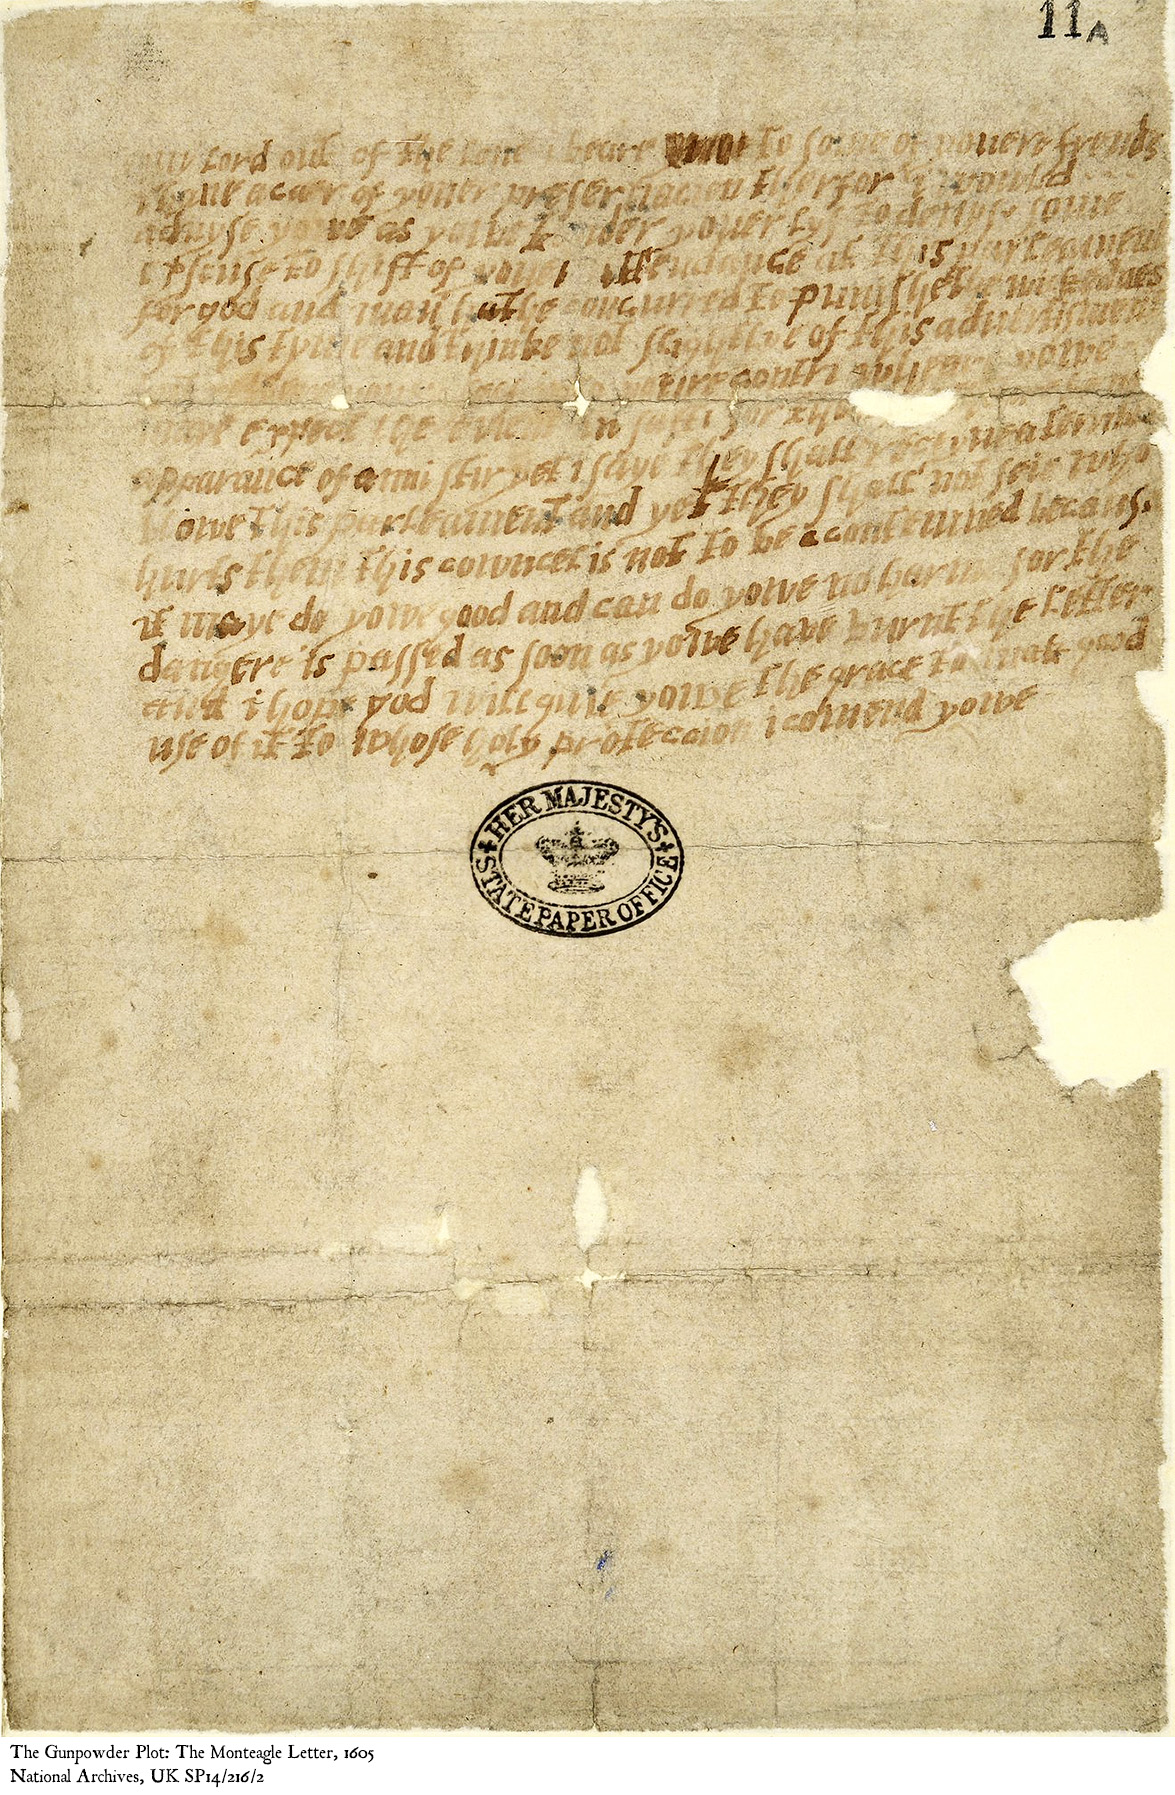 11A
my lord out of the love i beare to some of youere frends
i have a caer of youer preseruacion therfor i would
aduyse yowe as yowe tender youer lyf to deuys some
epscuse to shift of youer attendance at this parleament
for god and man hathe concurred to punishe the wickednes
of this tyme and thinke not slightlye of this aduertisment
youre contri wheare yowe
maye expect the event in safti for thoughe
apparance of anni stir yet i saye they shall receyve a terribel
blowe this parleament and yet they shall not seie who
hurts them this cowncel is not to be a contemned becaus
it maye do yowe good and can do yowe no harme for the
dangere is passed as soon as yowe have burnt the letter
and i hope god will give yowe the grace to mak good
use of it to whose holy proteccion i comend yowe
HER MAJESTY'S
STATE PAPER OFFICE
The Gunpowder Plot: The Monteagle Letter, 1605
National Archives, UK SP14/216/2